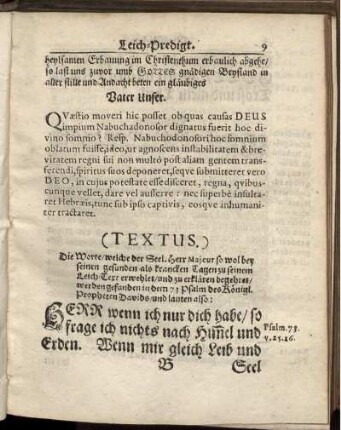 Leich-Predigt. 9
heylsamen Erbauung im Christenthum erbaulich abgehe/
so last uns zuvor umb GOTTES gnädigen Beystand in
aller stille und Andacht beten ein gläubiges
Vater Unser.
QVæstio moveri hic posset ob quas causas DEUS
impium Nabuchadonosor dignatus fuerit hoc di-
vino somnio? Resp. Nabuchodonosori hoc somnium
oblatum fuisse, ideo, ut agnoscens instabilitatem & bre-
vitatem regni sui non multò post aliam gentem trans-
ferendi, spiritus suos deponeret, seqve submitteret vero
DEO, in cujus potestate esse disceret, regna, qvibus-
cunque vellet, dare vel auferre: nec superbè insulta-
ret Hebræis, tunc sub ipso captivis, eosqve inhumani-
ter tractaret.
(TEXTUS.)
Die Worte/ welche der Seel. Herr Majeur so wol bey
seinen gesunden als krancken Tagen zu seinem
Leich-Text erwehlet/ und zu erklären begehret/
werden gefunden in dem 73 Psalm des Königl.
Propheten Davids/ und lauten also:
HERR wenn ich nur dich habe/ so
frage ich nichts nach Him̃el und
Erden. Wenn mir gleich Leib und
Psalm. 73.
v. 25. 26.
B Seel